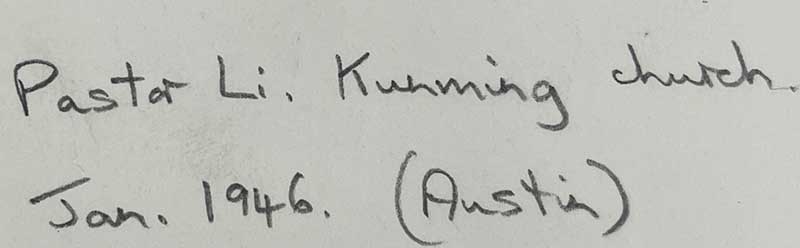 Pastor Li. Kunming church.
Jan. 1946. (Austin)